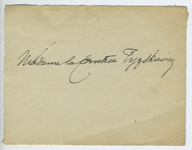 Madame la Comtesse Tyszkiewicz